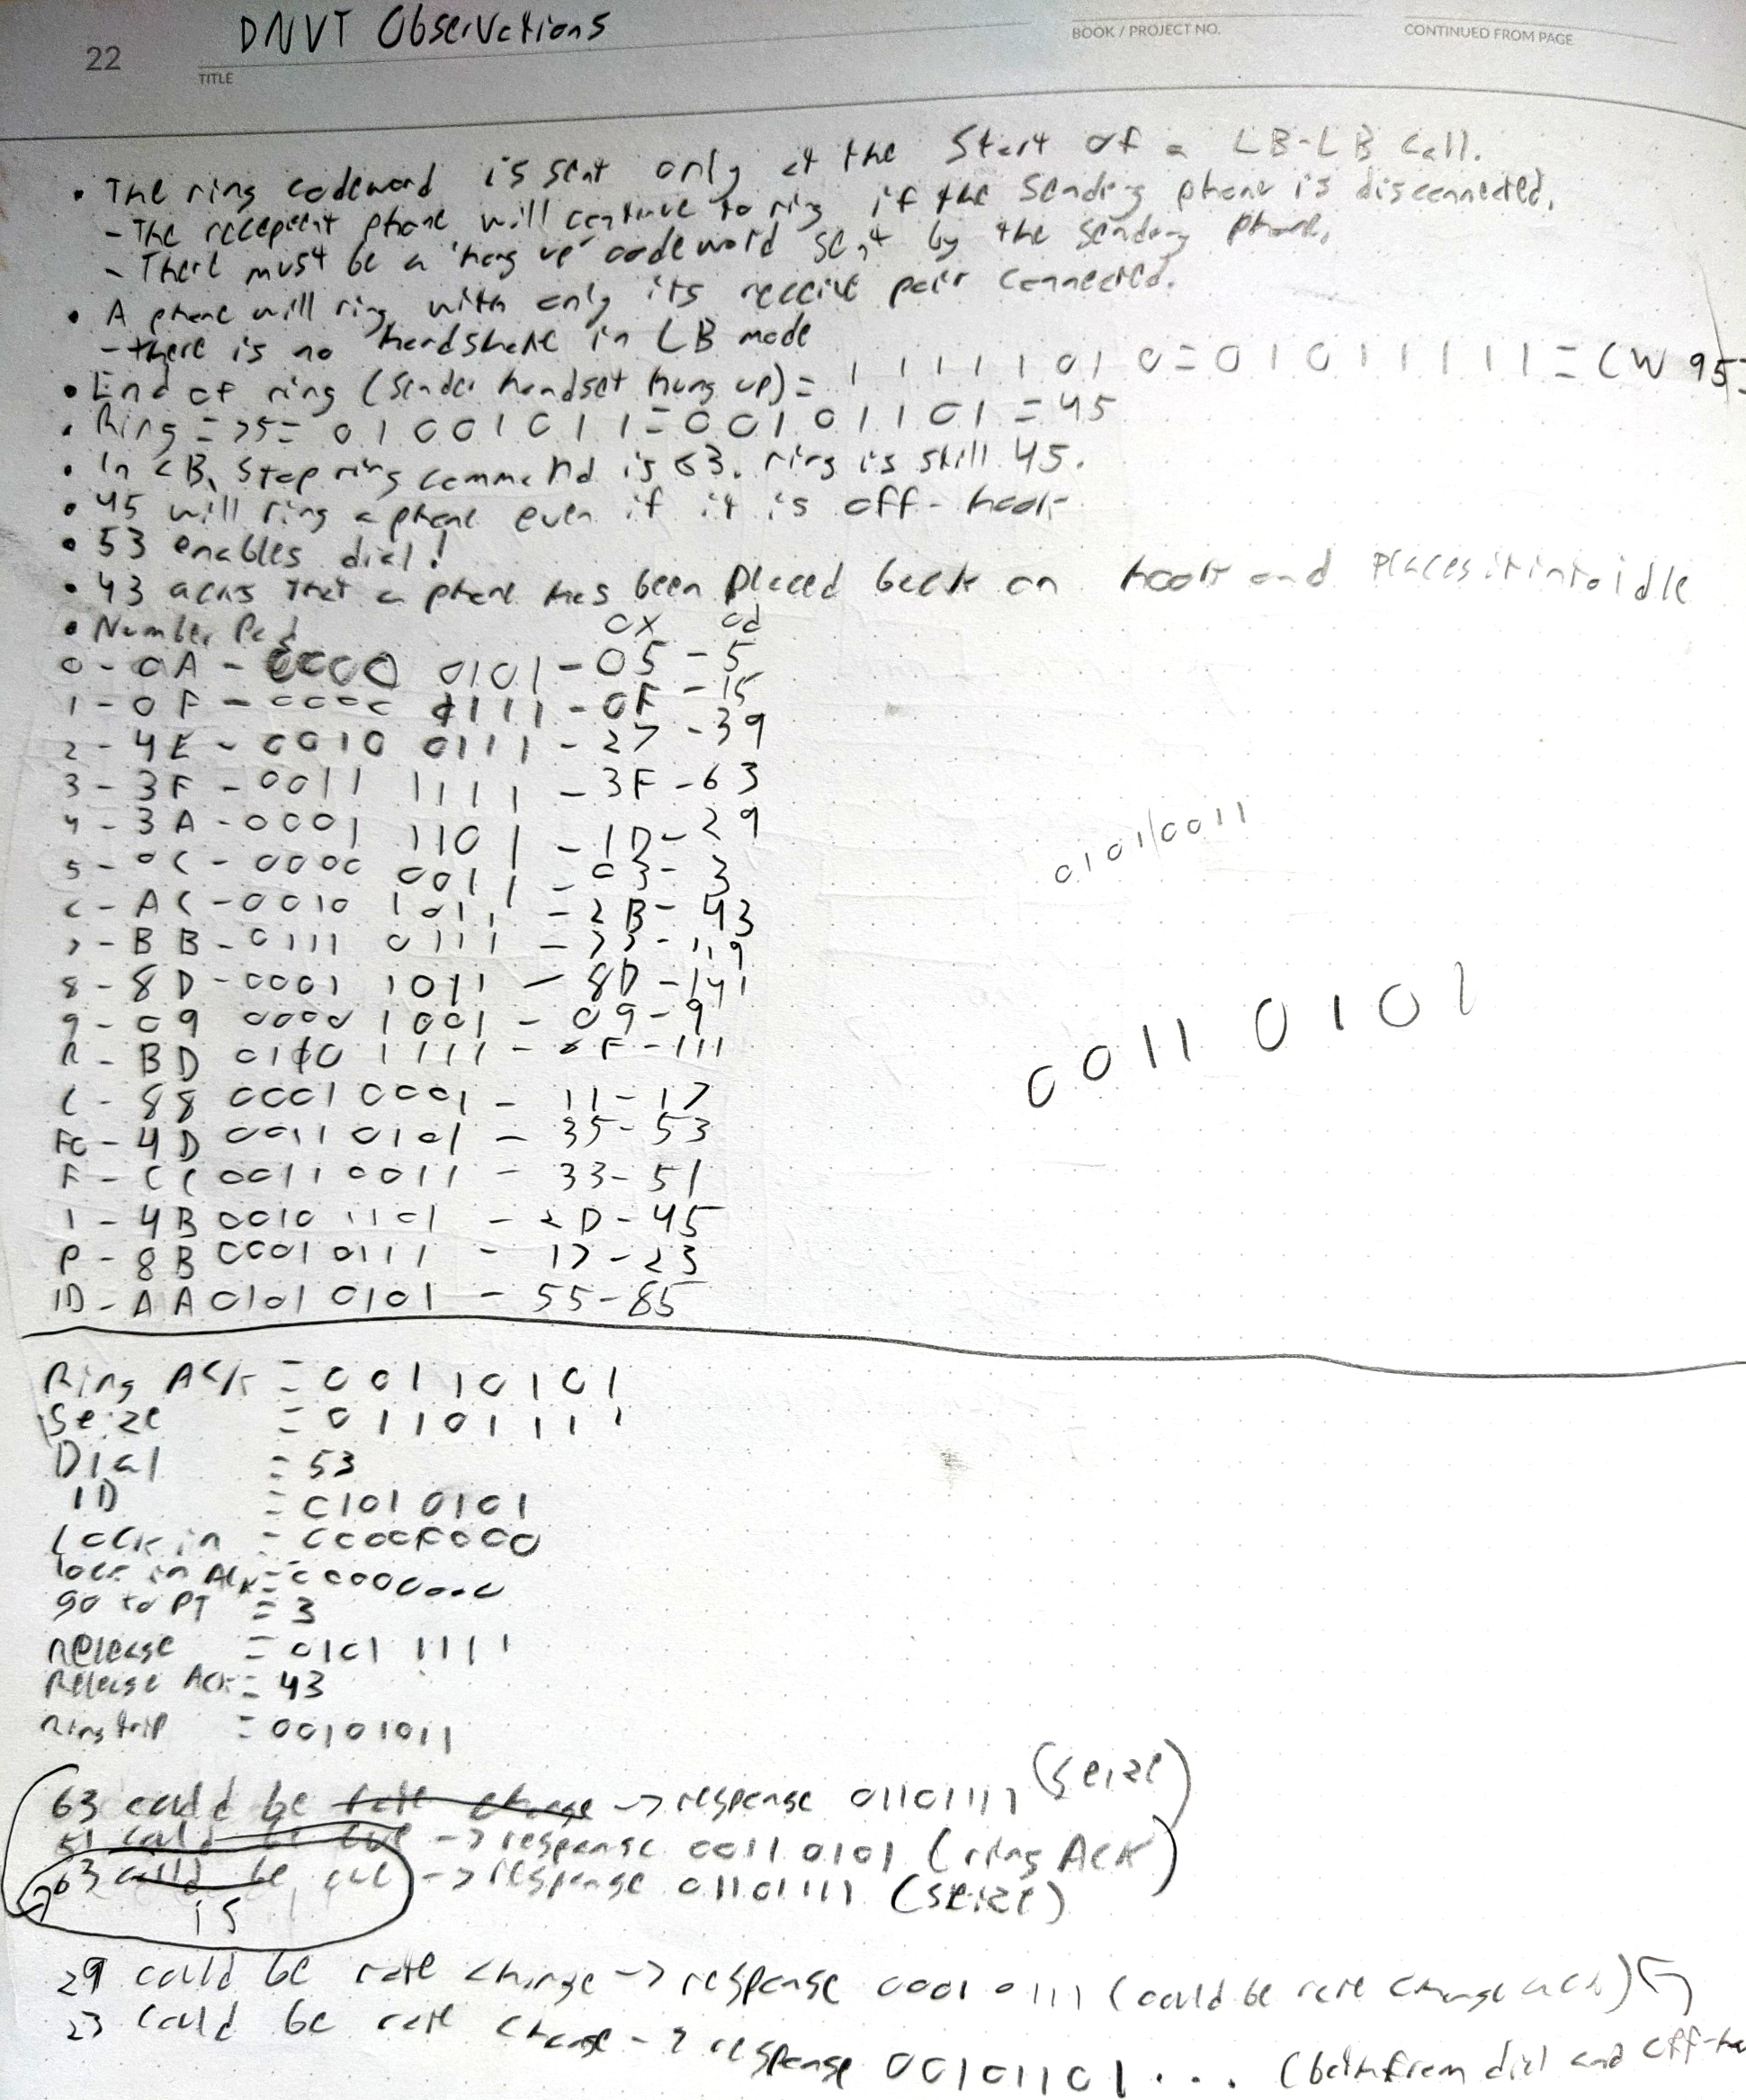 22
TITLE
DNVT Observations
BOOK / PROJECT NO.
CONTINUED FROM PAGE
• The ring codeword is sent only at the start of a LB-LB call.
- The recepeint phone will continue to ring if the sending phone is disconnected.
- There must be a "hang up" codeword sent by the sending phone.
• A phone will ring with only its receive pair connected.
- there is no handshake in LB mode
• End of ring (sender handset hung up) = 1 1 1 1 1 0 1 0 = 0 1 0 1 1 1 1 1 = CW 95
• Ring = 75 = 0 1 0 0 1 0 1 1 = 0 0 1 0 1 1 0 1 = 45
• In CB, stop ring command is 63. ring is still 45.
• 45 will ring a phone even if it is off-hook
• 53 enables dial!
• 43 acks that a phone has been placed back on hook and places it into idle
• Number Pad 0x 0d
0 - 0A - 0000 0101 - 05 - 5
1 - 0F - 0000 1111 - 0F - 15
2 - 4E - 0010 0111 - 27 - 39
3 - 3F - 0011 1111 - 3F - 63
4 - 3A - 0001 1101 - 1D - 29
5 - 0C - 0000 0011 - 03 - 3
6 - AC - 0010 1011 - 2B - 43
7 - BB - 0111 0111 - 77 - 119
8 - 8D - 0001 1011 - 8D - 141
9 - 09 0000 1001 - 09 - 9
R - BD 0110 1111 - 6F - 111
C - 88 0001 0001 - 11 - 17
FO - 4D 0011 0101 - 35 - 53
F - CC 0011 0011 - 33 - 51
I - 4B 0010 1101 - 2D - 45
P - 8B 0001 0111 - 17 - 23
ID - AA 0101 0101 - 55 - 85
0101/0011
0011 0101
Ring ACK = 00110101
Seize = 01101111
Dial = 53
ID = 01010101
Lock in = 00000000
lock in Ack = 00000000
go to PT = 3
Release = 0101 1111
Release Ack = 43
Ring trip = 00101011
63 could be rate change -> response 01101111 (seize)
51 could be cue -> response 0011 0101 (ring Ack)
63 could be cue -> response 01101111 (seize)
is
29 could be rate change -> response 0001 0111 (could be rate change ack)
23 could be rate change -> response 00101101 ... (both from dial and off-